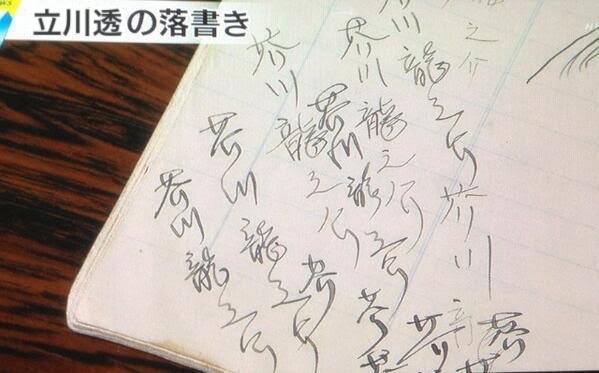 立川透の落書き
之介
芥川龍之介
芥川龍
芥川龍之介
芥川龍之介
芥川龍之介
芥川龍之介
芥川龍之介
芥川
芥
芥
芥